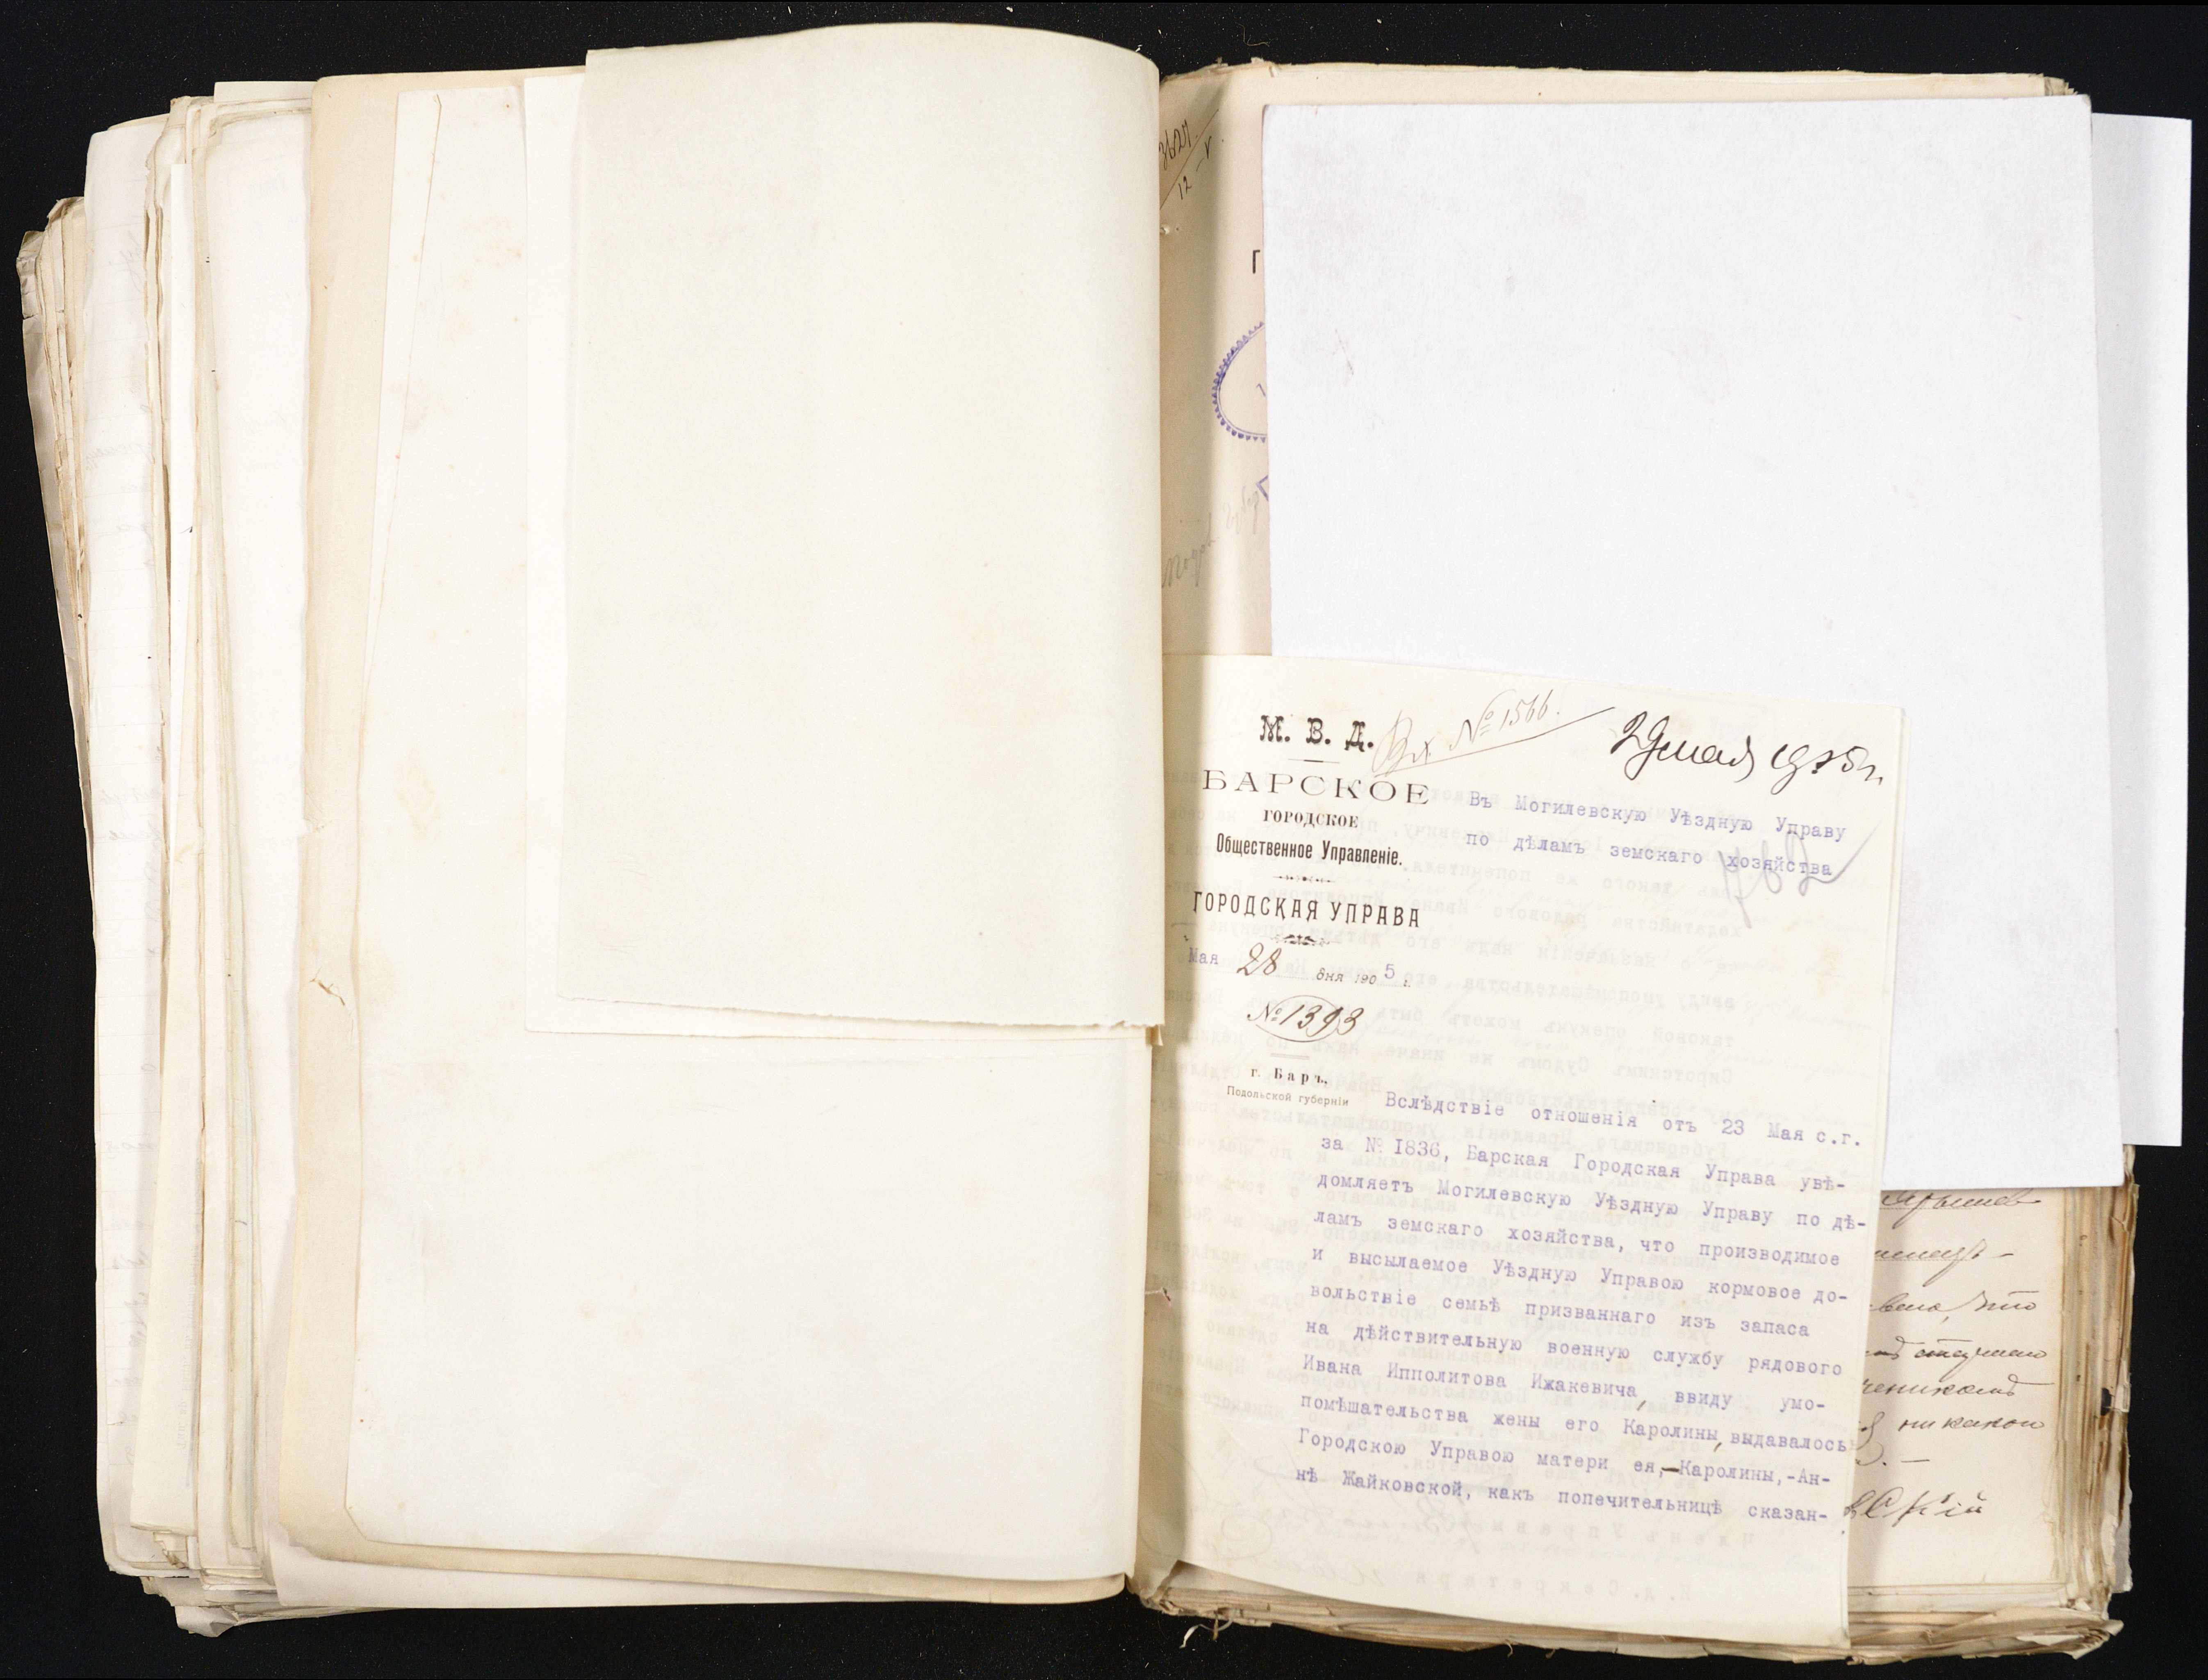 3627.
12 – V.
М. В. Д.
Вх № 1566.
29 мая 1905 г.
БАРСКОЕ
ГОРОДСКОЕ
Общественное Управленіе.
ГОРОДСКАЯ УПРАВА
Мая 28 дня 1905 г.
№ 1393
г. Баръ,
Подольской губерніи
Въ Могилевскую Уѣздную Управу
по дѣламъ земскаго хозяйства
Вслѣдствіе отношенія отъ 23 Мая с.г.
за № I836, Барская Городская Управа увѣ-
домляетъ Могилевскую Уѣздную Управу по дѣ-
ламъ земскаго хозяйства, что производимое
и высылаемое Уѣздную Управою кормовое до-
вольствіе семьѣ призваннаго изъ запаса
на дѣйствительную военную службу рядового
Ивана Ипполитова Ижакевича, ввиду умо-
помѣшательства жены его Каролины, выдавалось
Городскою Управою матери ея,-Каролины,-Ан-
нѣ Жайковской, какъ попечительницѣ сказан-
что
никакой